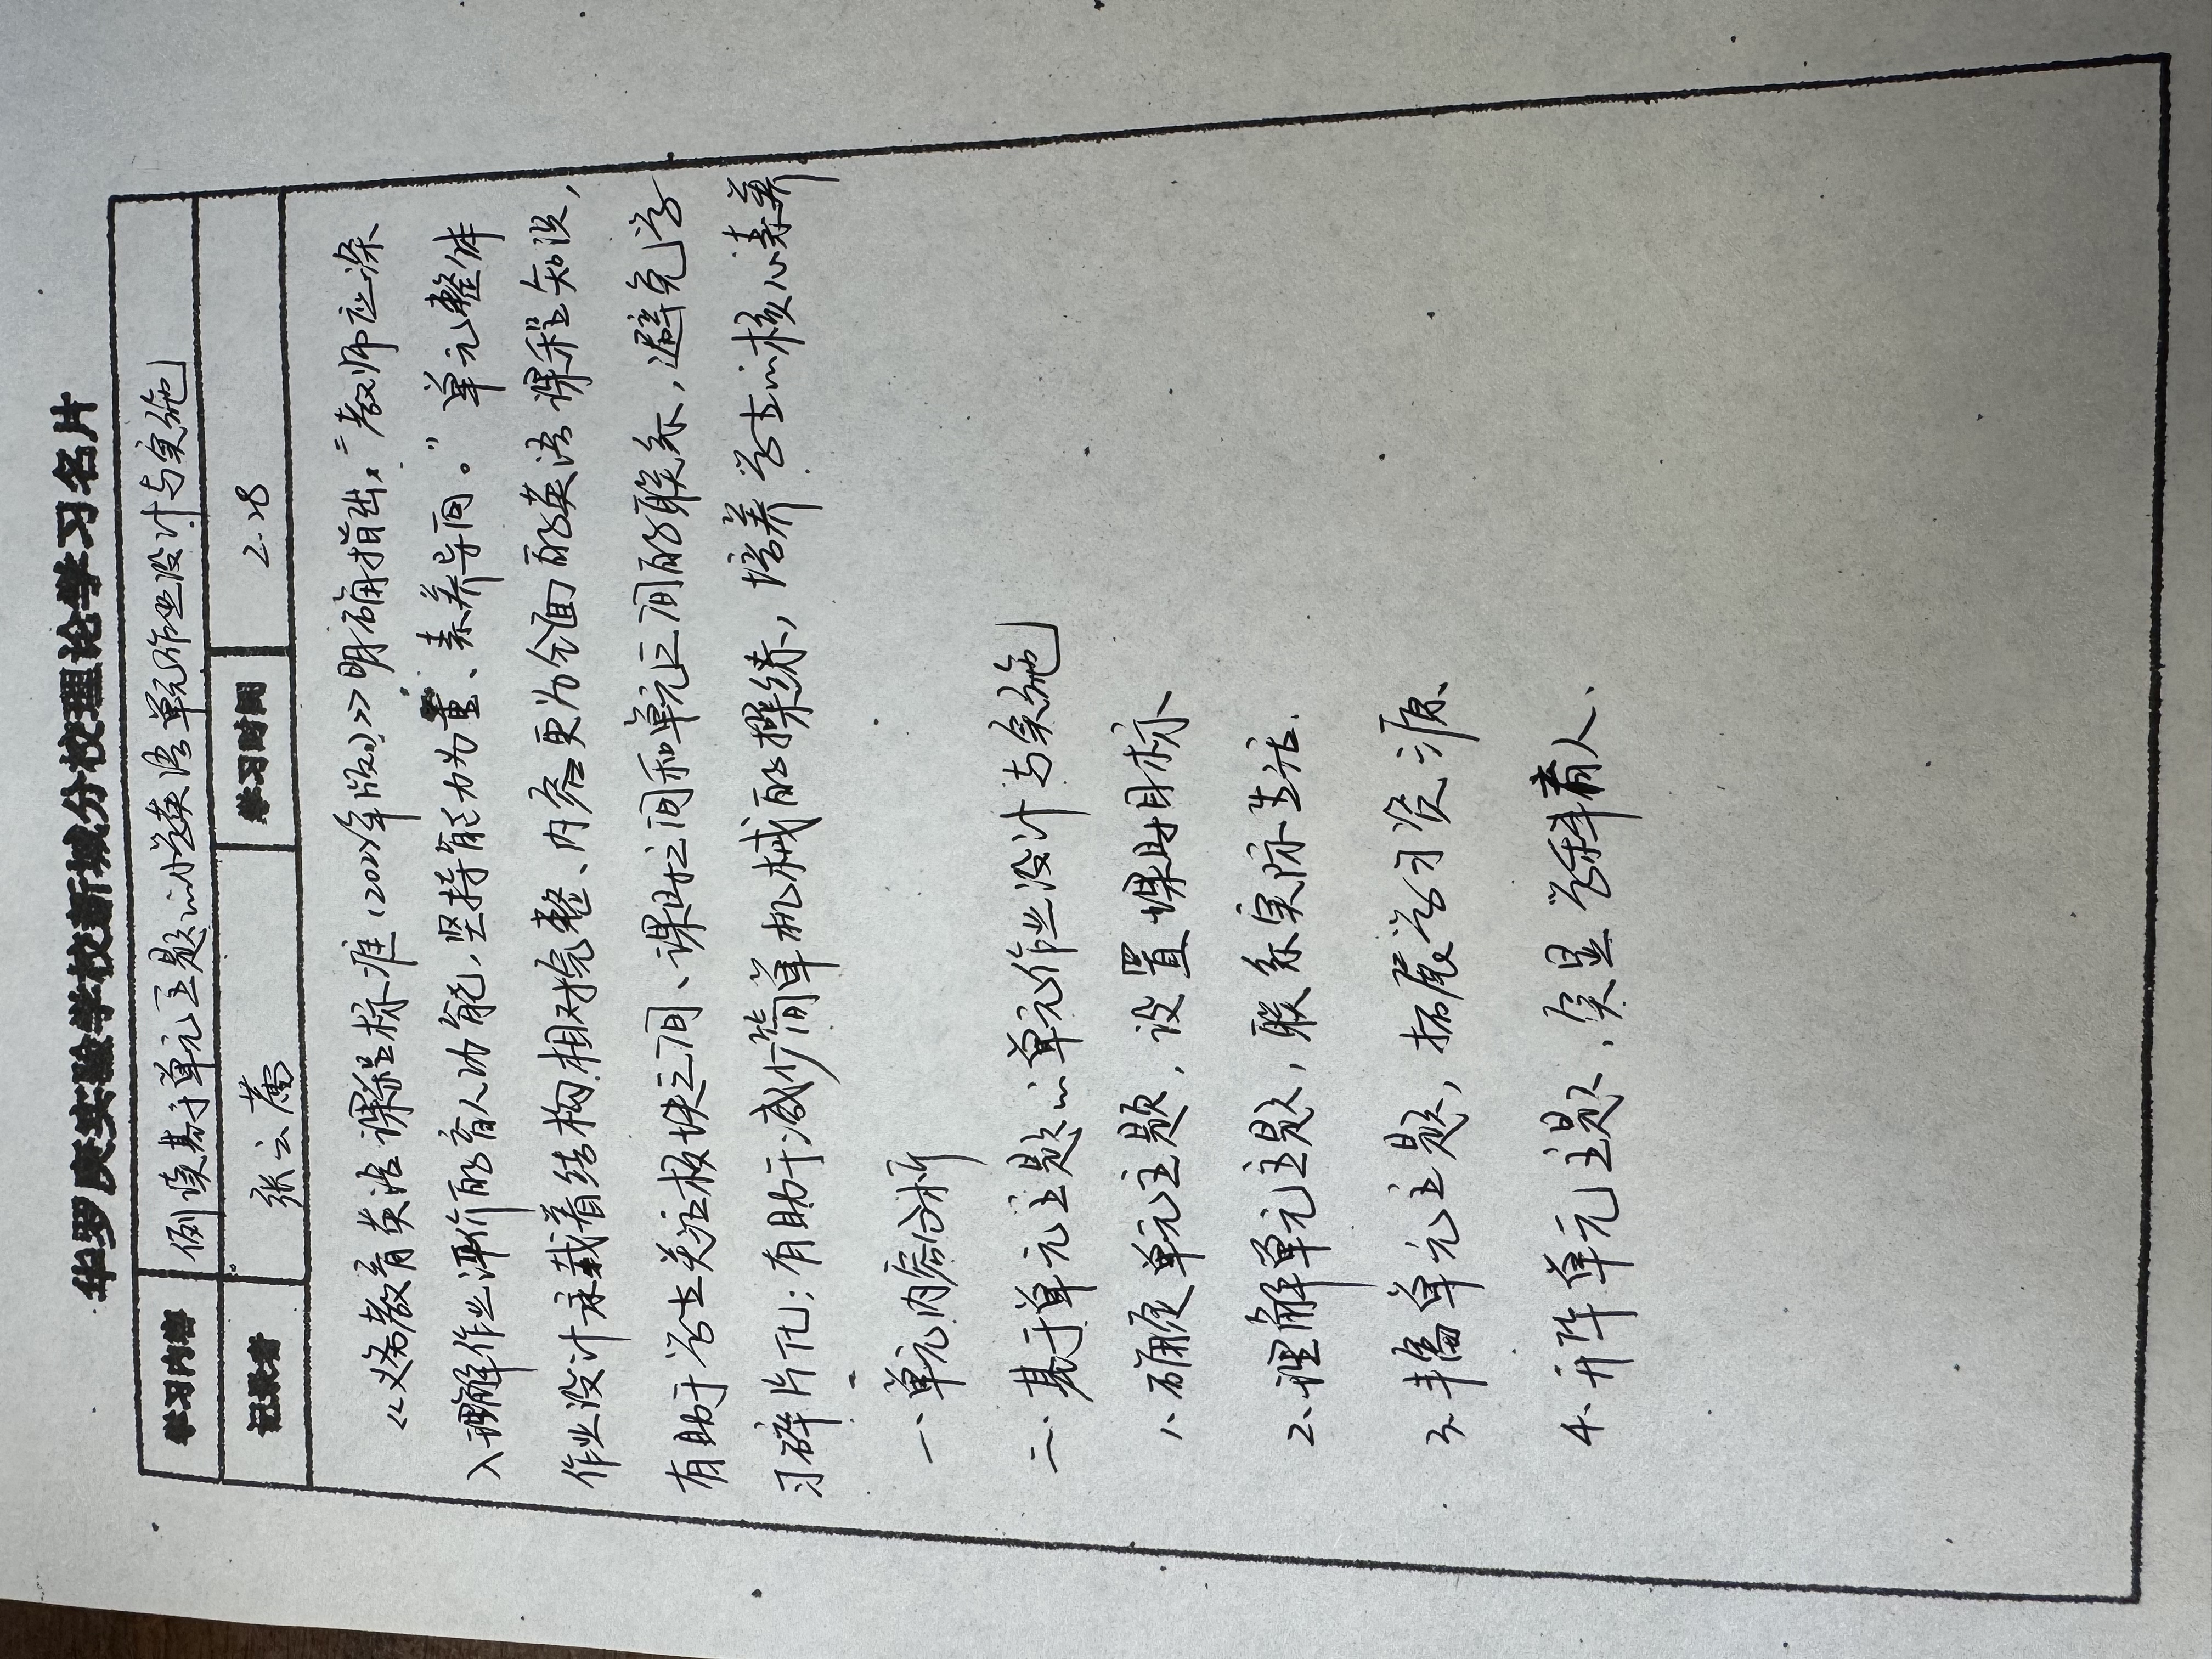 华罗庚实验学校新城分校理论学习名片
学习内容 例谈基于单元主题的小学英语单元作业设计与实施
记录者 张云薷 学习时间 2.28
《义务教育英语课程标准(2022年版)》明确指出:"教师应深
入理解作业评价的育人功能,坚持能力为重、素养导向。"单元整体
作业设计承载着结构相对完整、内容更为全面的英语课程知识,
有助于学生关注板块之间、课时之间和单元之间的联系,避免学
习碎片化;有助于减少简单机械的操练,培养学生的核心素养
一、单元内容分析
二、基于单元主题的单元作业设计与实施
1、确定单元主题,设置课时目标
2、理解单元主题,联系实际生活.
3、丰富单元主题,拓展学习资源.
4、升华单元主题,突显学科育人.